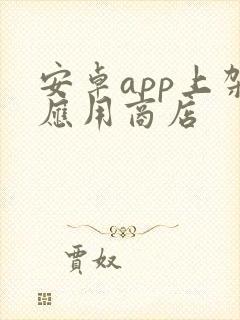 安卓app上架
應用商店
賈奴